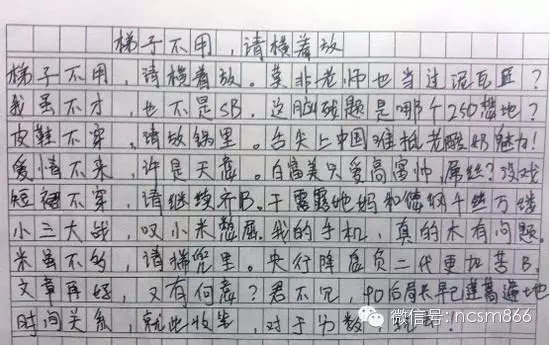 梯子不用，请横着放
梯子不用，请横着放。莫非老师也当过泥瓦匠？
我虽不才，也不是SB。这脑残题是哪个250想地？
皮鞋不穿，请放锅里。舌尖上中国难抵老酸奶魅力！
爱情不来，许是天意。白富美只爱高富帅，屌丝？没戏
短裙不穿，请继续齐B。干露露她妈和德纲千丝万缕
小三大战，叹小米憋屈。我的手机，真的木有问题。
米虽不多，请揣兜里。央行降息负二代更加苦B。
文章再好，又有何意？君不见，90后局长早已遍地
时间关系，就此收笔，对于分数，
微信号：ncsm866